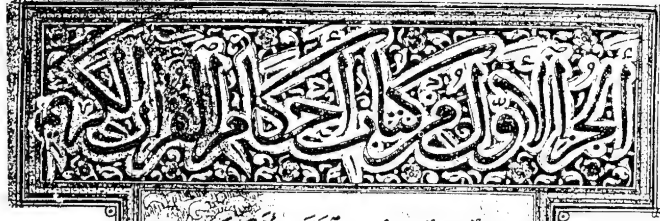 الجزء الأول من كتاب أحكام القرآن الكريم